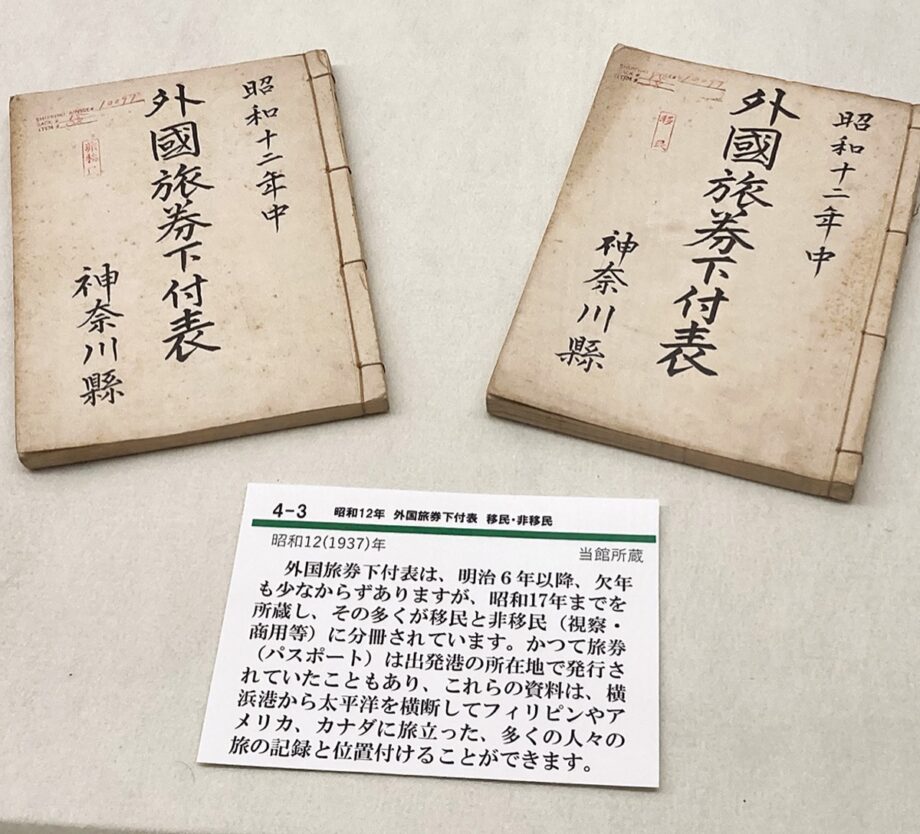 昭和十二年中
外國旅券下付表
神奈川縣
昭和十二年中
外國旅券下付表
神奈川縣
移民
4-3 昭和12年 外国旅券下付表 移民・非移民
昭和12(1937)年
当館所蔵
外国旅券下付表は、明治６年以降、欠年
も少なからずありますが、昭和17年までを
所蔵し、その多くが移民と非移民（視察・
商用等）に分冊されています。かつて旅券
（パスポート）は出発港の所在地で発行さ
れていたこともあり、これらの資料は、横
浜港から太平洋を横断してフィリピンやア
メリカ、カナダに旅立った、多くの人々の
旅の記録と位置付けることができます。